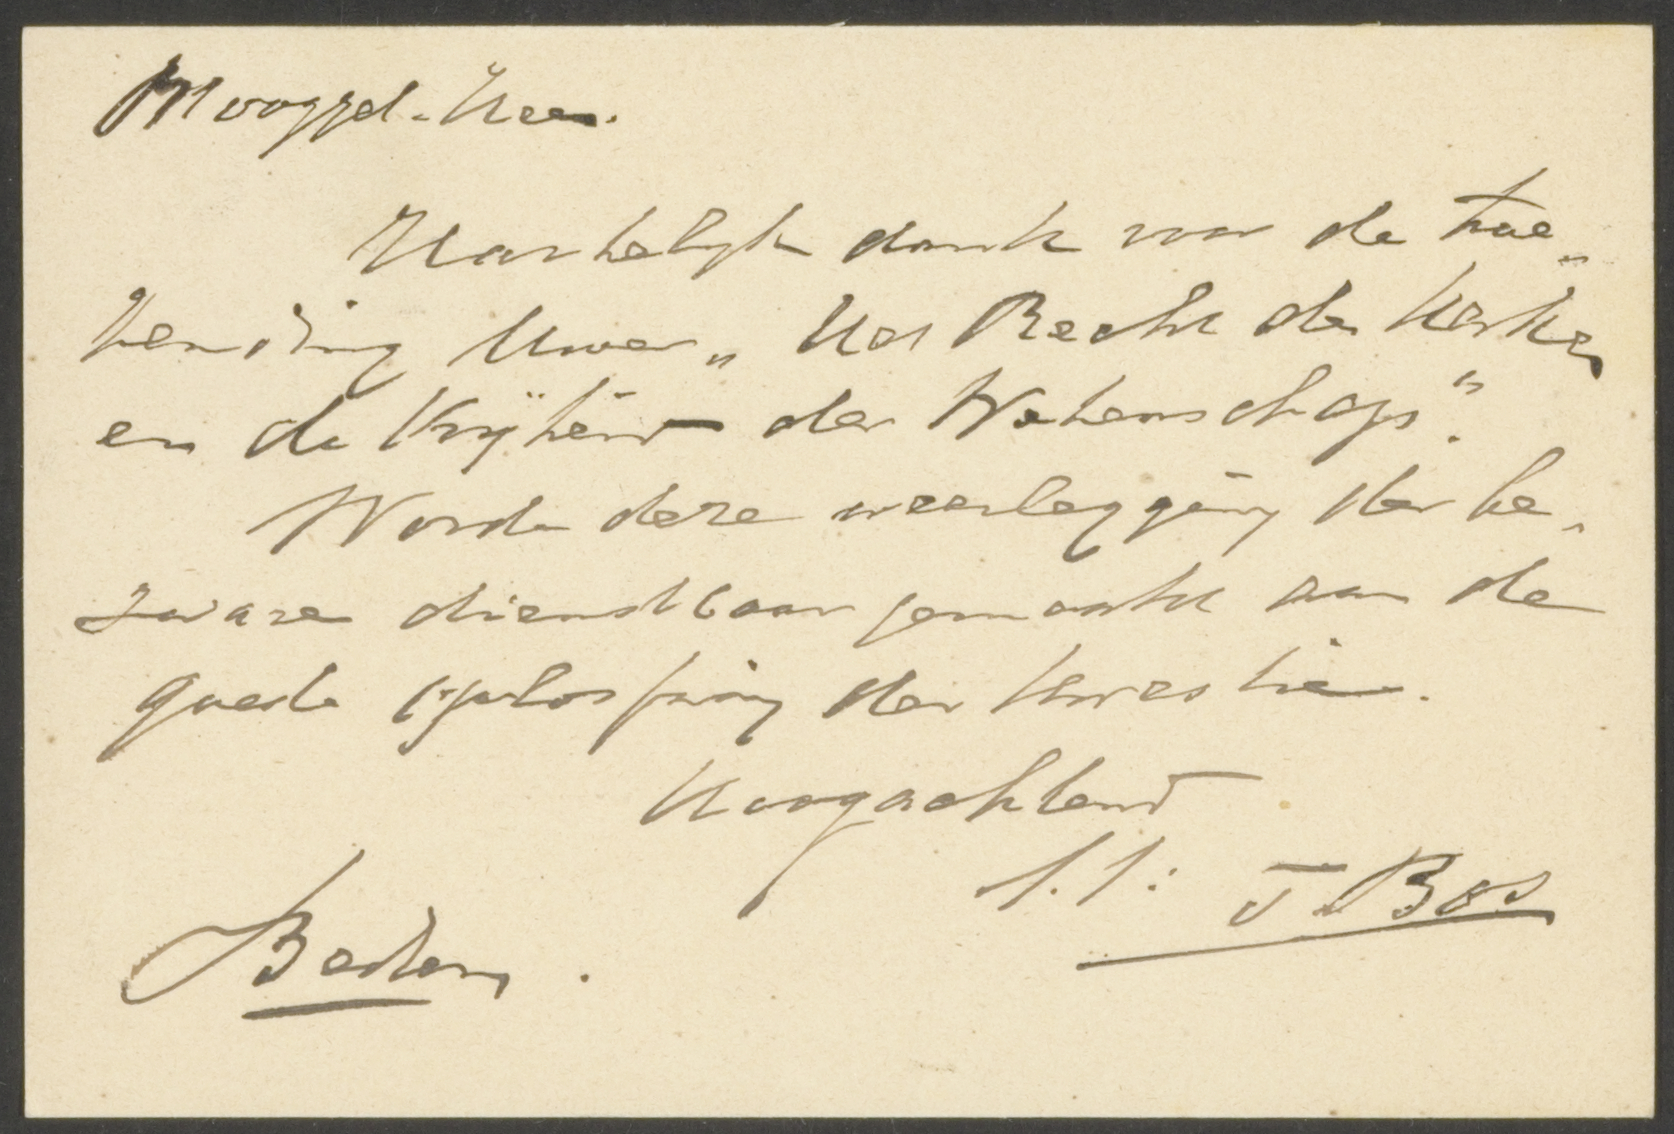 Hooggel. Heer.
Hartelijk dank voor de toe„
zending Uwer „Het Recht der Kerken
en de Vrijheid der Wetenschap".
Worde deze weerlegging der be„
zwaren dienstbaar gemaakt aan de
goede oplossing der kwestie.
Hoogachtend
T. Bos
Bedum.